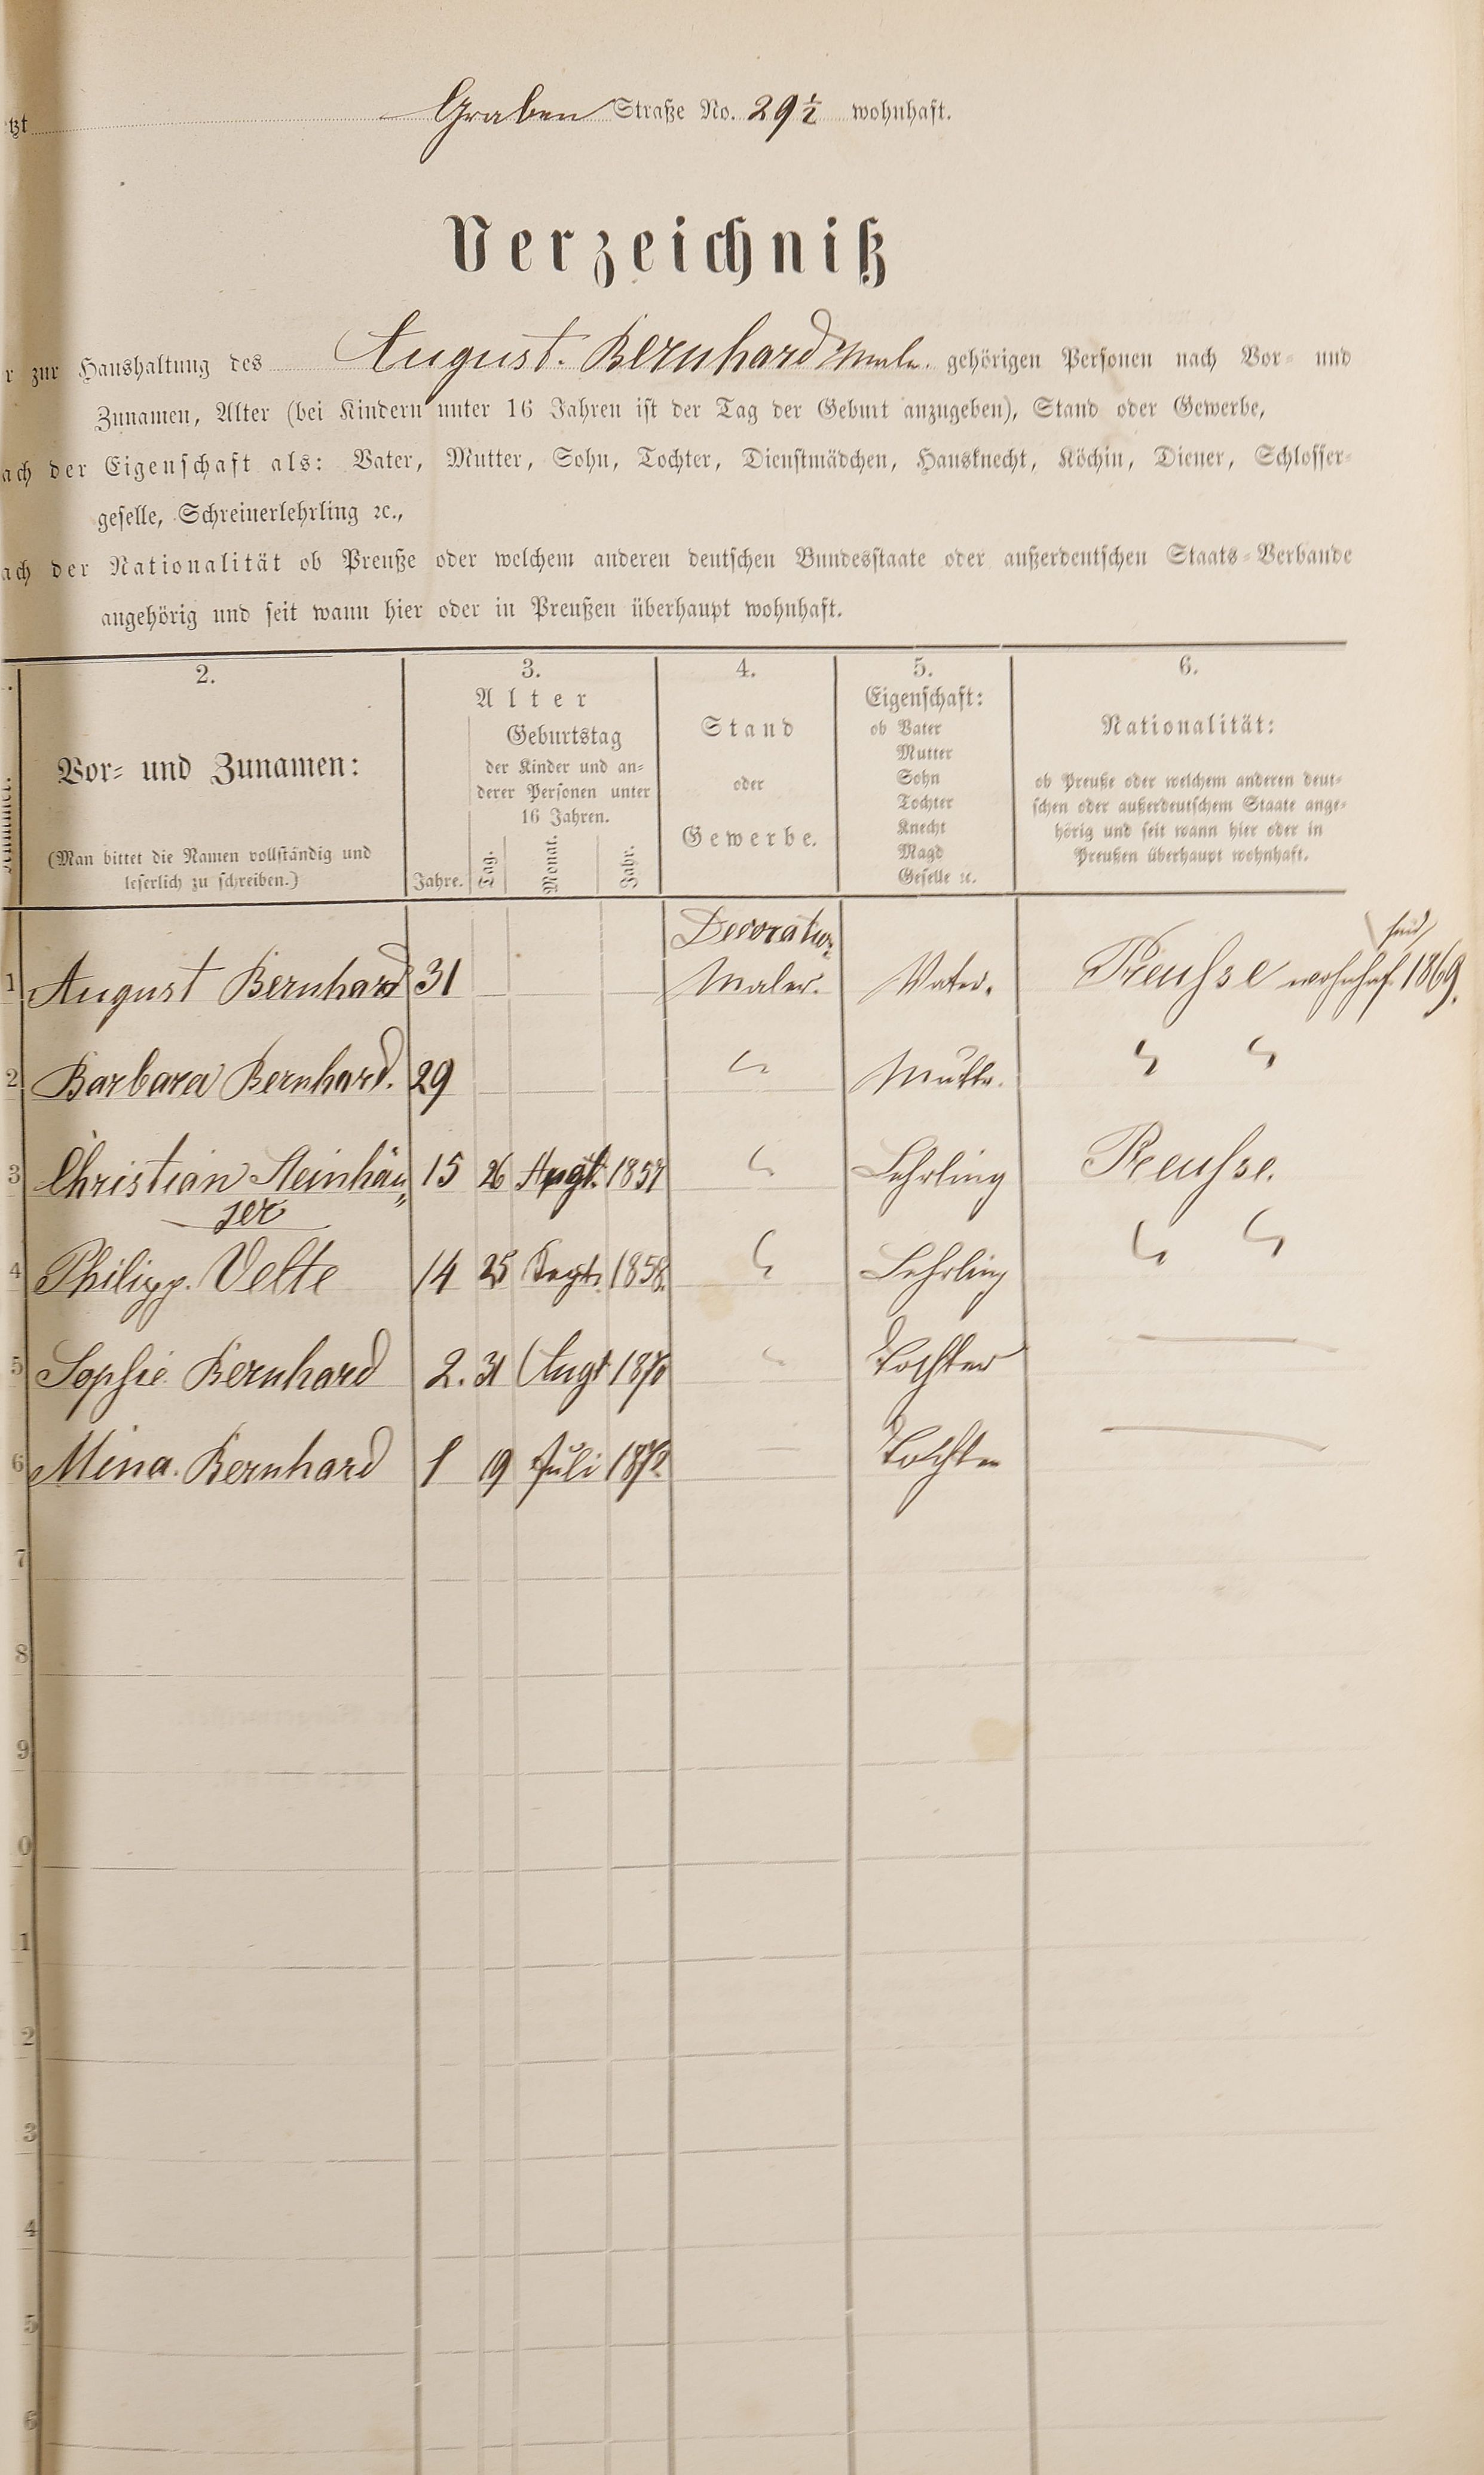 tzt Graben Straße No. 29 1/2 wohnhaft.
Verzeichniß
r zur Haushaltung des August. Bernhard Maler. gehörigen Personen nach Vor- und
Zunamen, Alter (bei Kindern unter 16 Jahren ist der Tag der Geburt anzugeben), Stand oder Gewerbe,
ach der Eigenschaft als: Vater, Mutter, Sohn, Tochter, Dienstmädchen, Hausknecht, Köchin, Diener, Schlosser-
geselle, Schreinerlehrling ꝛc.,
ach der Nationalität ob Preuße oder welchem anderen deutschen Bundesstaate oder außerdeutschen Staats-Verbande
angehörig und seit wann hier oder in Preußen überhaupt wohnhaft.
2.
Vor- und Zunamen:
(Man bittet die Namen vollständig und
leserlich zu schreiben.)
3.
Alter
Geburtstag
der Kinder und an-
derer Personen unter
16 Jahren.
Jahre. Tag. Monat. Jahr.
4.
Stand
oder
Gewerbe.
5.
Eigenschaft:
ob Vater
Mutter
Sohn
Tochter
Knecht
Magd
Geselle ꝛc.
6.
Nationalität:
ob Preuße oder welchem anderen deut-
schen oder außerdeutschem Staate ange-
hörig und seit wann hier oder in
Preußen überhaupt wohnhaft.
Decoration
1 August Bernhard 31 Maler. Vater. Preusse wohnhaf. 1869.
2 Barbara Bernhard. 29 " Mutter. " "
3 Christian Steinhäu„ 15 26 Augt. 1857 " Lehrling Preusse.
ser
4 Philipp. Velte 14 25 Sept. 1858. " Lehrling " "
5 Sophie Bernhard 2. 31 Augt 1870 " Tochter —
6 Mina. Bernhard 1 19 Juli 1872. — Tochter —
7
8
9
0
1
2
3
4
5
6